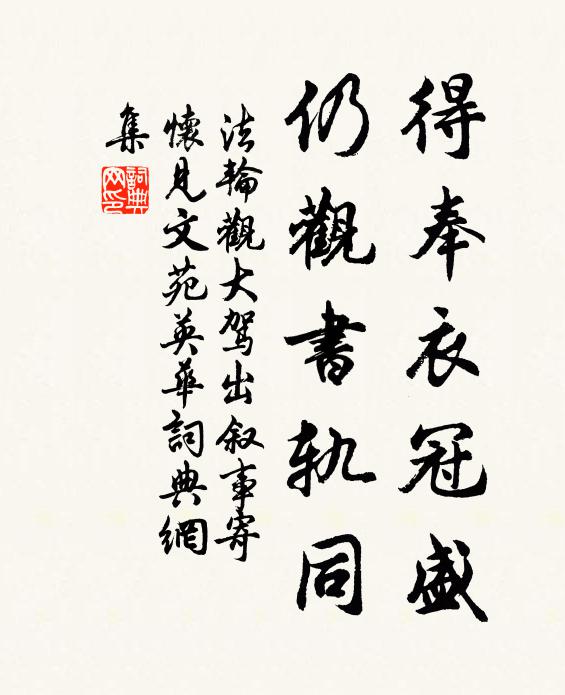 得奉衣冠盛
仍觀書軌同
法輪觀大駕出叙事寄
懷見文苑英華詞典網
集
詞典
网印